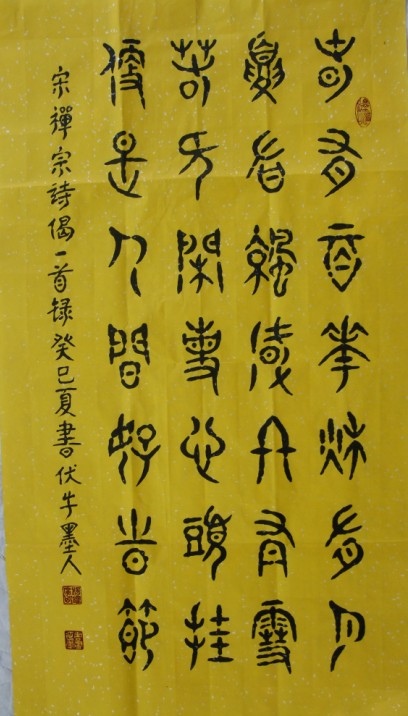 春有百花秋有月
夏有涼風冬有雪
若无閑事心頭挂
便是人間好旹節
宋禪宗詩偈一首録癸巳夏書伏牛墨人